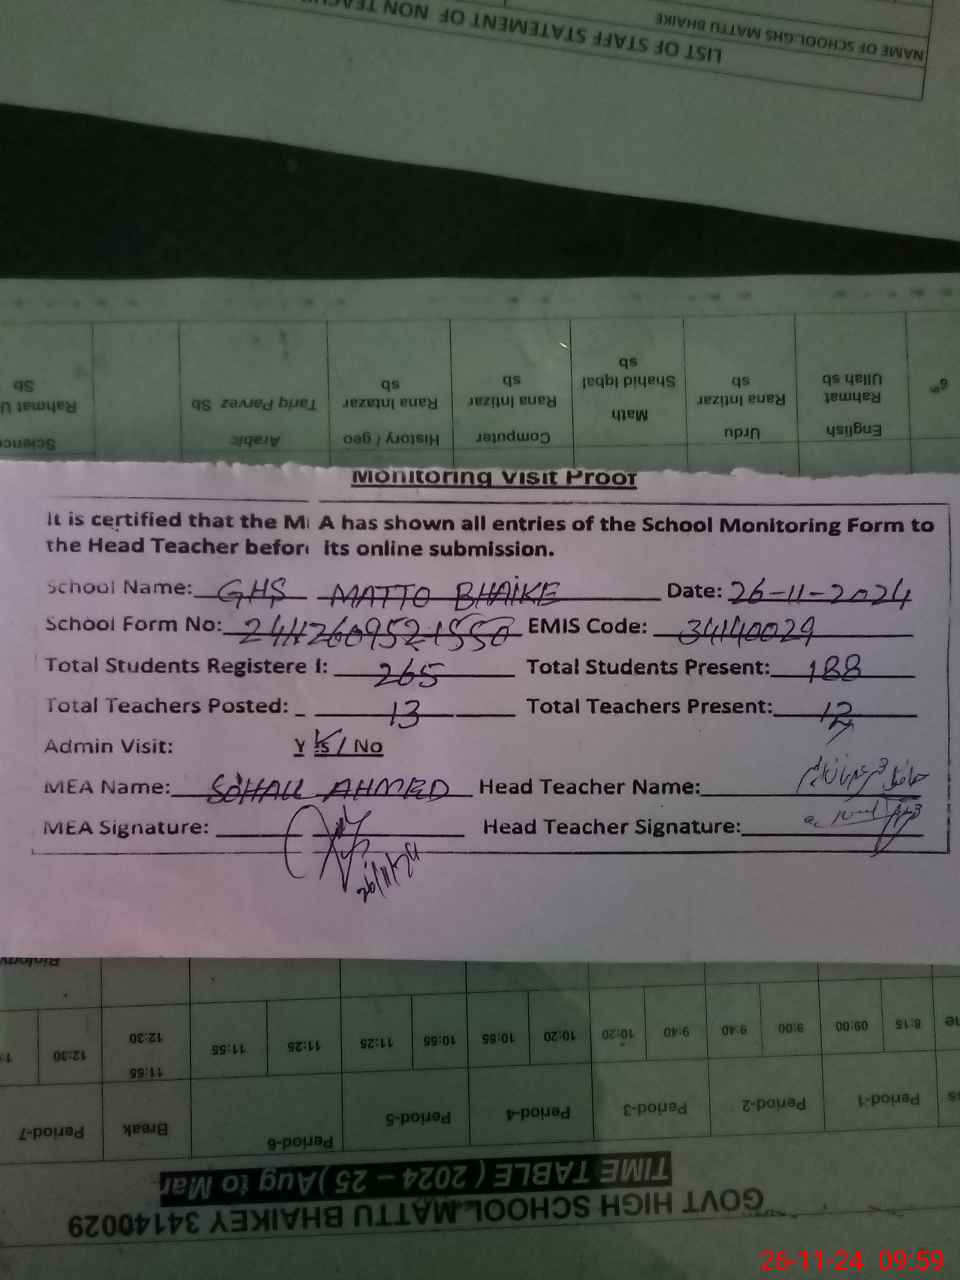 NAME OF SCHOOL:GHS MATTU BHAIKE
LIST OF STAFF STATEMENT OF NON
6th English Rahmat Ullah sb
Urdu Rana Intizar sb
Math Shahid Iqbal sb
Computer Rana Intizar sb
History / geo Rana Intazar sb
Arabic Tariq Parvez Sb
Science Rahmat U Sb
Monitoring Visit Proof
It is certified that the M A has shown all entries of the School Monitoring Form to
the Head Teacher before its online submission.
School Name: GHS MATTO BHAIKE Date: 26-11-2024
School Form No: 24112609521550 EMIS Code: 34140029
Total Students Registere l: 265 Total Students Present: 188
Total Teachers Posted: 13 Total Teachers Present: 12
Admin Visit: Yes / No
MEA Name: SOHAIL AHMED Head Teacher Name:
MEA Signature: Head Teacher Signature:
26/11/24
GOVT HIGH SCHOOL MATTU BHAIKEY 34140029
TIME TABLE ( 2024 – 25 )Aug to Mar
Period-1 Period-2 Period-3 Period-4 Period-5 Period-6 Break Period-7
8:15 09:00 9:00 9:40 9:40 10:20 10:20 10:55 10:55 11:25 11:25 11:55 11:55 12:30 12:30
Biology
26-11-24 09:59